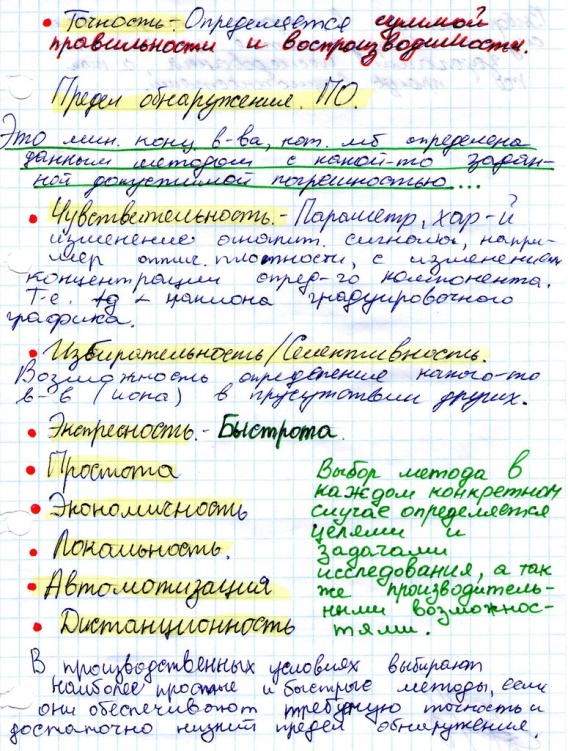 • Точность.- Определяется суммой
правильности и воспроизводимости.
Предел обнаружения. ПО.
Это мин. конц. в-ва, кот. мб определена
данным методом с какой-то задан-
ной допустимой погрешностью...
• Чувствительность.- Параметр, хар-й
изменение аналит. сигнала, напри-
мер оптич. плотности, с изменением
концентрации опред-го компонента.
Т.е. tg наклона градуировочного
графика.
• Избирательность/Селективность.
Возможность определение какого-то
в-в (иона) в присутствии других.
• Экспресность.- Быстрота.
• Простота
• Экономичность
• Локальность.
• Автоматизация
• Дистанционность
Выбор метода в
каждом конкретном
случае определяется
целями и
задачами
исследования, а так
же производитель-
ными возможнос-
тями.
В производственных условиях выбирают
наиболее простые и быстрые методы, если
они обеспечивают требуемую точность и
достаточно низкий предел обнаружение.